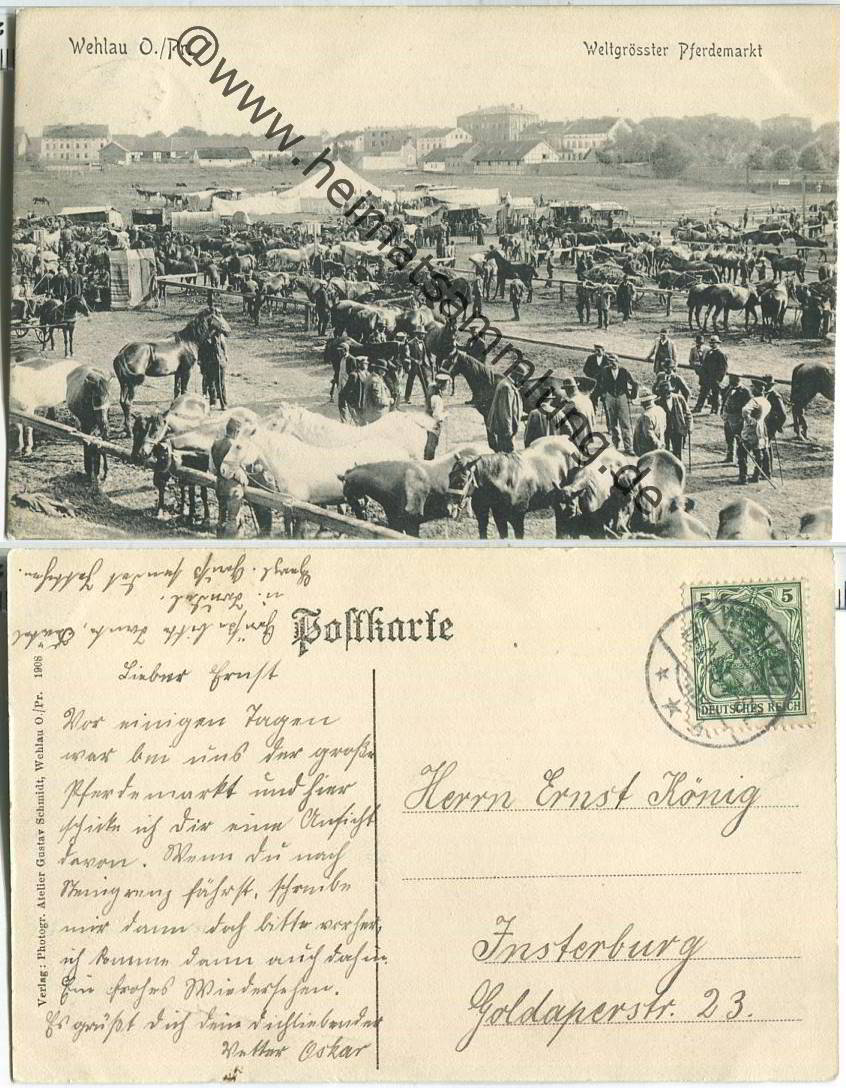 Wehlau O./Pr.
Weltgrösster Pferdemarkt
@www.heimatsammlung.de
Postkarte
5 5
DEUTSCHES REICH
WEHLAU
Verlag: Photogr. Atelier Gustav Schmidt, Wehlau O./Pr. 1908
Lieber Ernst
Vor einigen Tagen
war bei uns der große
Pferdemarkt und hier
schicke ich Dir eine Ansicht
davon. Wenn Du nach
fährst, schreibe
mir dann doch bitte vorher,
ich komme dann auch dahin.
Ein frohes Wiedersehen.
Es grüßt Dich dein Dichliebender
Vetter Oskar
Herrn Ernst König
Insterburg
Goldaperstr. 23.